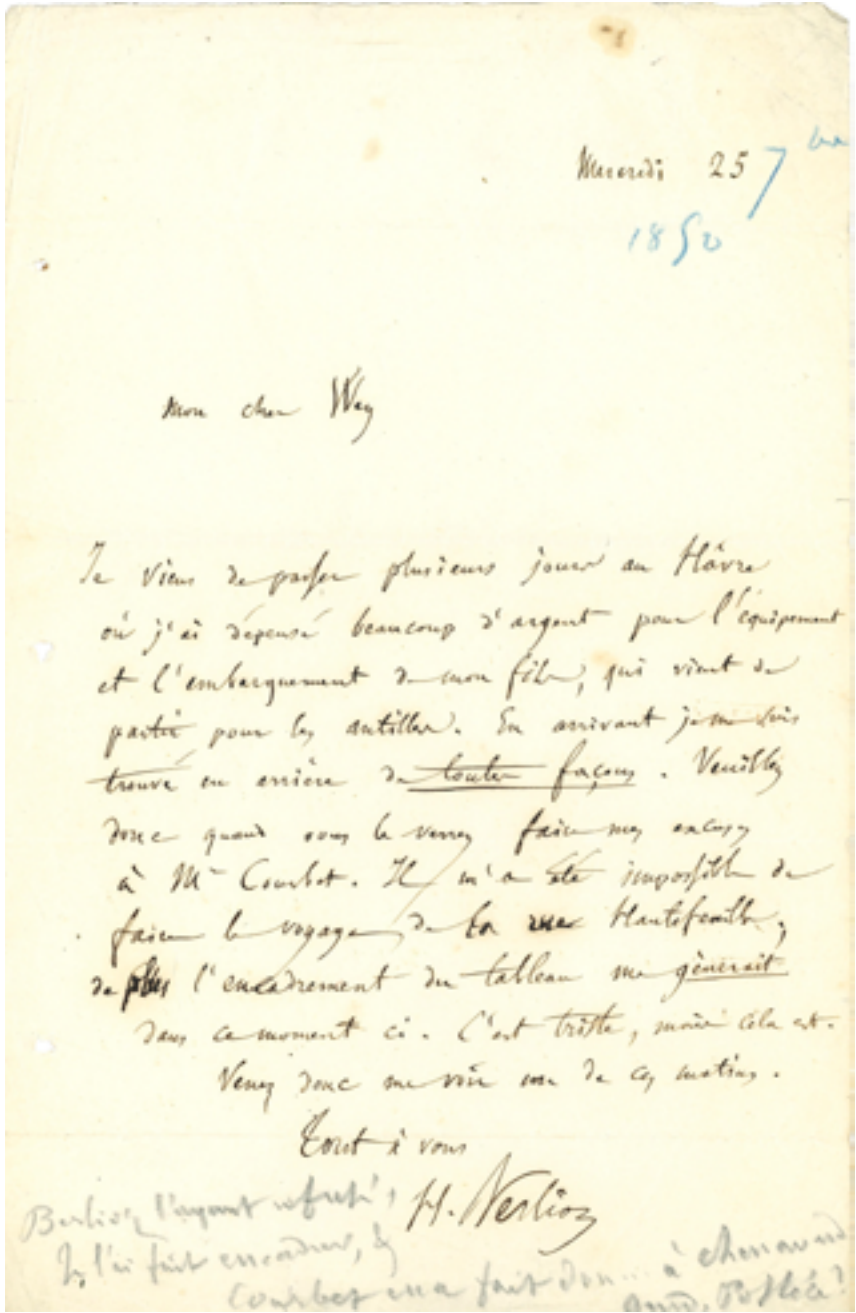 Mercredi 25 7bre
1850
Mon cher Wey
Je viens de passer plusieurs jours au Hâvre
où j'ai dépensé beaucoup d'argent pour l'équipement
et l'embarquement de mon fils, qui vient de
partir pour les antilles. En arrivant je me suis
trouvé en arrière de toutes façons. Veuillez
donc quand vous le verrez faire mes excuses
à Mr Courbet. Il m'a été impossible de
faire le voyage de la rue Hautefeuille,
de plus l'encadrement du tableau me gênerait
dans ce moment ci. C'est triste, mais cela est.
Venez donc me voir un de ces matins.
Tout à vous
H. Berlioz
Berlioz l'ayant refusé,
Je l'ai fait encadrer, &
Courbet en a fait don à Chenavard